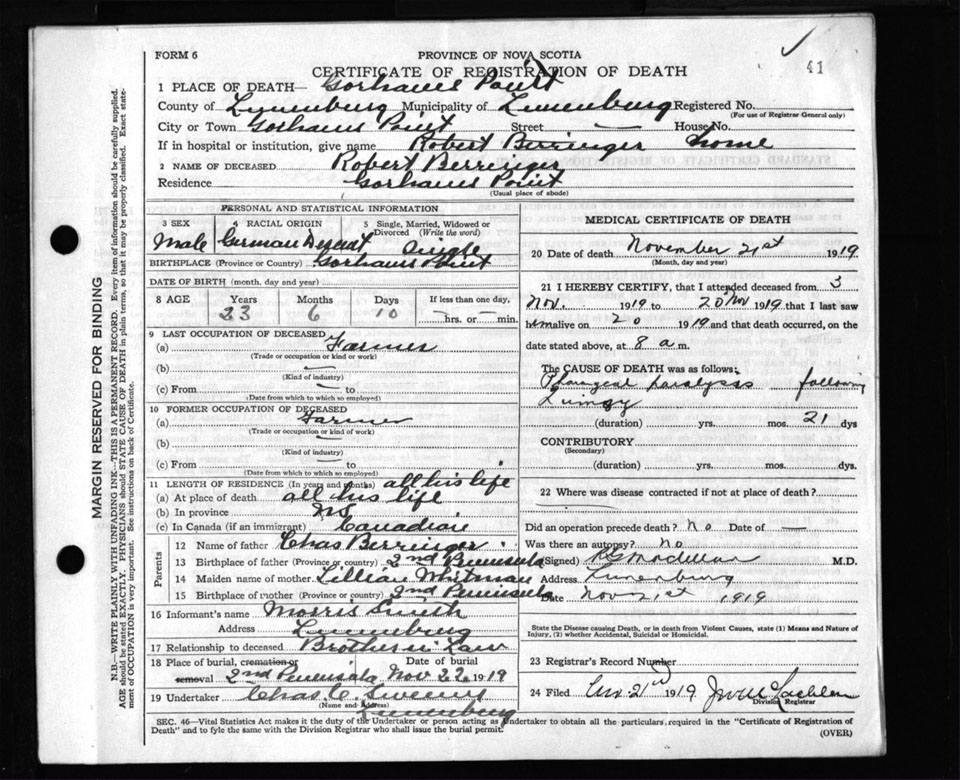 FORM 6
PROVINCE OF NOVA SCOTIA
41
CERTIFICATE OF REGISTRATION OF DEATH
1 PLACE OF DEATH— Gorhams Point
County of Lunenburg Municipality of Lunenburg Registered No.
(For use of Registrar General only)
City or Town Gorhams Point Street — House No.
If in hospital or institution, give name Robert Berringer home
2 NAME OF DECEASED Robert Berringer
Residence Gorhams Point
(Usual place of abode)
MARGIN RESERVED FOR BINDING
N.B.—WRITE PLAINLY WITH UNFADING INK—THIS IS A PERMANENT RECORD. Every item of information should be carefully supplied.
AGE should be stated EXACTLY. PHYSICIANS should STATE CAUSE OF DEATH in plain terms, so that it may be properly classified. Exact state-
ment of OCCUPATION is very important. See instructions on back of Certificate.
PERSONAL AND STATISTICAL INFORMATION
3 SEX 4 RACIAL ORIGIN 5 Single, Married, Widowed or
Divorced (Write the word)
Male German Descent Single
BIRTHPLACE (Province or Country) Gorhams Point
DATE OF BIRTH (month, day and year)
8 AGE Years Months Days If less than one day,
23 6 10 — hrs. or — min.
9 LAST OCCUPATION OF DECEASED
(a) Farmer
(Trade or occupation or kind or work)
(b) —
(Kind of industry)
(c) From —
(Date from which to which so employed)
10 FORMER OCCUPATION OF DECEASED
(a) Farmer
(Trade or occupation or kind of work)
(b) —
(Kind of industry)
(c) From —
(Date from which to which so employed)
11 LENGTH OF RESIDENCE (In years and months) all his life
(a) At place of death all his life
(b) In province NS
(c) In Canada (if an immigrant) Canadian
Parents
12 Name of father Chas Berringer
13 Birthplace of father (Province or country) 2nd Peninsula
14 Maiden name of mother Lillian Whitman
15 Birthplace of mother (Province or country) 2nd Peninsula
16 Informant's name Morris Smith
Address Lunenburg
17 Relationship to deceased Brother in Law
18 Place of burial, cremation or Date of burial
removal 2nd Peninsula Nov 22 1919
19 Undertaker Chas. C. Sweeny
(Name and Address)
Lunenburg
MEDICAL CERTIFICATE OF DEATH
20 Date of death November 21st 1919
(Month, day and year)
21 I HEREBY CERTIFY, that I attended deceased from 3
Nov. 1919 to 20 Nov 1919 that I last saw
him alive on 20 1919 and that death occurred, on the
date stated above, at 8 a m.
The CAUSE OF DEATH was as follows:
paralysis following
Quinsy
(duration) yrs. mos. 21 dys
CONTRIBUTORY
(Secondary)
(duration) yrs. mos. dys.
22 Where was disease contracted if not at place of death?
Did an operation precede death? No Date of —
Was there an autopsy? No
(Signed) M.D.
Address Lunenburg
Date Nov 21st 1919
State the Disease causing Death, or in death from Violent Causes, state (1) Means and Nature of
Injury, (2) whether Accidental, Suicidal or Homicidal.
23 Registrar's Record Number
24 Filed Nov 21st 1919
Division Registrar
SEC. 46—Vital Statistics Act makes it the duty of the Undertaker or person acting as Undertaker to obtain all the particulars required in the "Certificate of Registration of
Death" and to fyle the same with the Division Registrar who shall issue the burial permit.
(OVER)